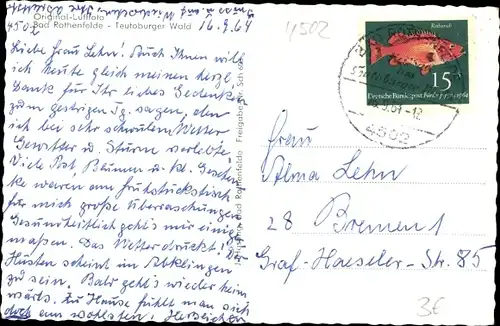 Original-Luftfoto
Bad Rothenfelde - Teutoburger Wald
4502
16.9.64
Liebe Frau Lehn! Auch Ihnen will
ich heute gleich meinen herzl.
Dank für Ihr liebes Gedenken
zum gestrigen Tg. sagen, den
ich bei sehr schwülem Wetter
Gewitter u. Sturm verlebte.
Viele Post, Blumen u. kl. Geschen-
ke waren am Frühstückstisch
für mich große Überraschungen
Gesundheitlich geht's mir einiger-
maßen. Das Wetter drückt! Der
Husten scheint im Abklingen
zu sein. Bald geht's wieder heim
wärts. Zu Hause fühlt man sich
doch am wohlsten! Herzlichen
Bad Rothenfelde Freigabe
4502
Rotbarsch
15
Deutsche Bundespost
4502
Frau
Alma Lehn
28 Bremen 1
Graf-Haeseler-Str. 85
3E